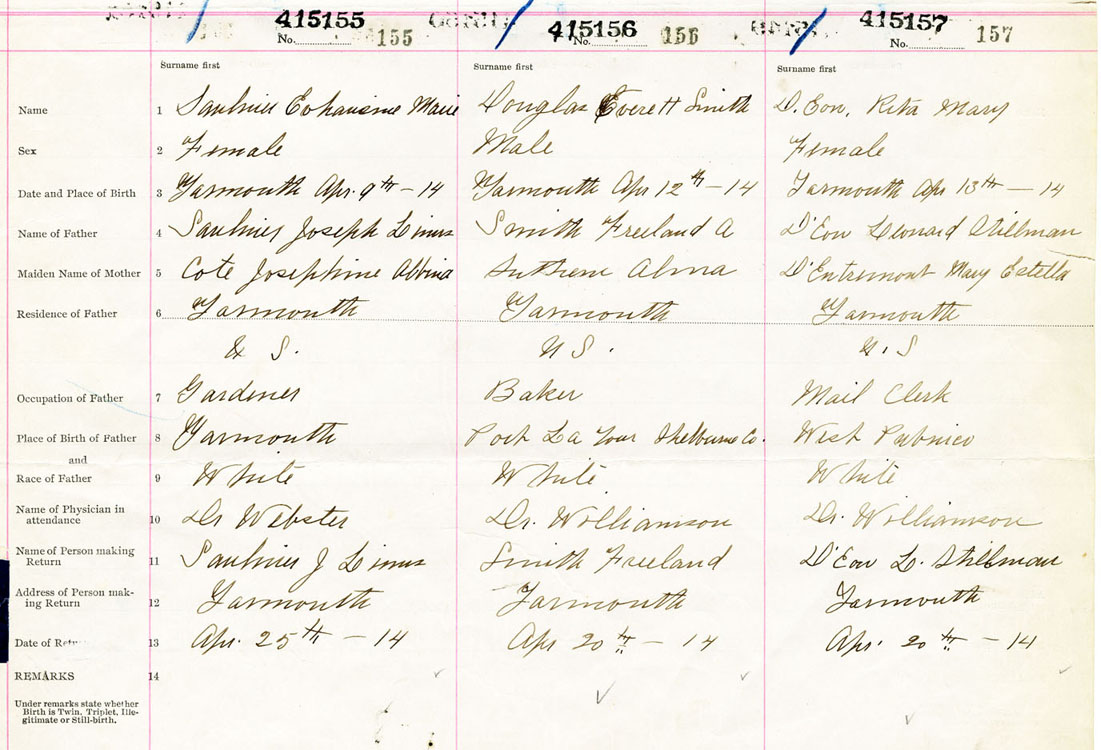 415155 415156 415157
No. 155 No. 156 No. 157
Surname first Surname first Surname first
Name 1 Saulnier Marie Douglas Everett Smith D.Eon, Rita Mary
Sex 2 Female Male Female
Date and Place of Birth 3 Yarmouth Apr. 9th - 14 Yarmouth Apr 12th - 14 Yarmouth Apr 13th - 14
Name of Father 4 Saulnier Joseph Linus Smith Freeland A D'Eon Leonard Stillman
Maiden Name of Mother 5 Cote Josephine Albina Alma D'Entremont Mary Estella
Residence of Father 6 Yarmouth Yarmouth Yarmouth
N S. N S. N.S
Occupation of Father 7 Gardener Baker Mail Clerk
Place of Birth of Father 8 Yarmouth Port La Tour Shelburne Co. West Pubnico
and
Race of Father 9 White White White
Name of Physician in
attendance 10 Dr Webster Dr. Williamson Dr. Williamson
Name of Person making
Return 11 Saulnier J Linus Smith Freeland D'Eon L. Stillman
Address of Person mak-
ing Return 12 Yarmouth Yarmouth Yarmouth
Date of 13 Apr. 25th - 14 Apr 20th - 14 Apr. 20th - 14
REMARKS 14
Under remarks state whether
Birth is Twin, Triplet, Ille-
gitimate or Still-birth.